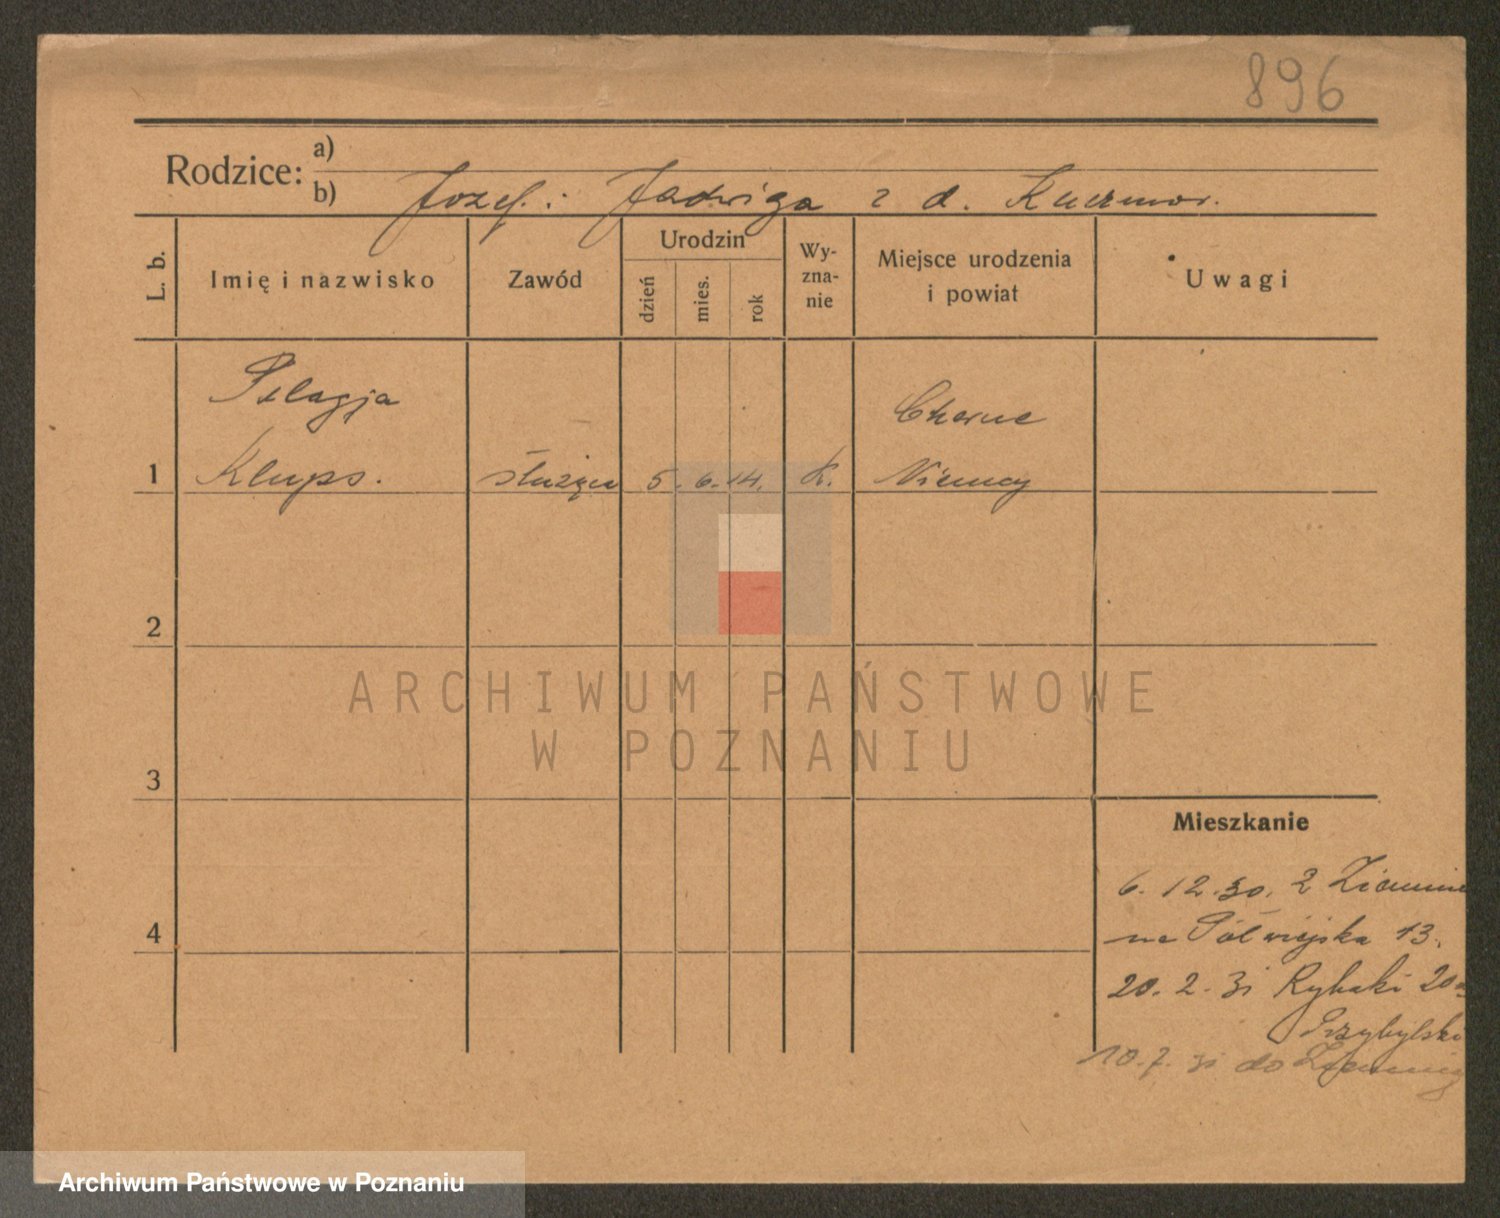 896
Rodzice: a)
b) Jozef i Jadwiga z d. Kuczmor.
L. b.
Imię i nazwisko
Zawód
Urodzin
dzień
mies.
rok
Wy-
zna-
nie
Miejsce urodzenia
i powiat
Uwagi
Pelagja
Klups.
1
służąca
5. 6. 14.
K.
Niemcy
2
3
4
Mieszkanie
6. 12. 30. z
na Półwiejska 13.
20. 2. 31 Rybaki 20
Przybylski
10. 7. 31 do
ARCHIWUM PAŃSTWOWE
W POZNANIU
Archiwum Państwowe w Poznaniu